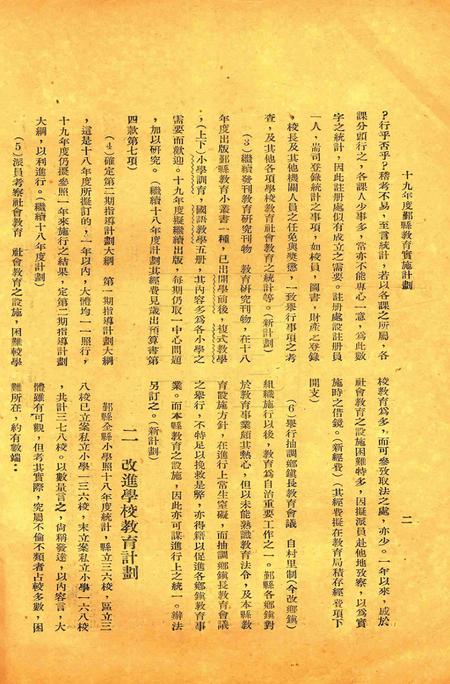 十九年度鄞縣教育實施計劃
二
？行乎否乎？稽考不易，至言統計，若以各課之所屬，各
課分頭行之，各課人少事多，當亦不能專心一意，爲此數
字之統計，因此註册處似有成立之需要。註册處設註册員
一人，耑司登錄統計之事項，如校員，圖書，財產之登錄
，校長及其他機關人員之任免與獎懲，一致舉行事項之考
查，及其他各項學校教育社會教育之統計等。（新計劃）
（３）繼續發刊教育研究刊物　教育研究刊物，在十八
年度出版鄞縣教育小叢書一種，已出開學前後，複式教學
，（上下）小學訓育，國語教學五册，其內容多爲各小學之
需要而歡迎。十九年度擬繼續出版，每期仍取一中心問題
，加以研究。（繼續十八年度計劃其經費見歲出預算書第
四款第七項）
（４）確定第二期指導計劃大綱　第一期指導計劃大綱
，這是十八年度所擬訂的，一年以內，大體均一一照行，
十九年度仍擬參照一年來施行之結果，定第二期指導計劃
大綱，以利進行。（繼續十八年度計劃）
（５）派員考察社會教育　社會教育之設施，困難較學
校教育爲多，而可參攷取法之處，亦少。一年以來，感於
社會教育之設施困難特多，因擬派員赴他地攷察，以爲實
施時之借鏡。（新經費）（其經費擬在教育局積存經費項下
開支）
（６）舉行抽調鄉鎭長教育會議　自村里制（今改鄉鎭）
組織施行以後，教育爲自治重要工作之一。鄞縣各鄉鎭對
於教育事業頗其熱心，但以未能熟識教育法令，及本縣教
育設施方針，在進行上常生窒礙，而抽調鄉鎭長教育會議
之舉行，不特足以挽救是弊，亦得藉以促進各鄉鎭教育事
業。而本縣教育之設施，因此亦可謀進行上之統一。辦法
另訂之。（新計劃）
二　改進學校教育計劃
鄞縣全縣小學照十八年度統計，縣立三六校，區立三
八校已立案私立小學一三六校，未立案私立小學一六八校
，共計三七八校。以數量言之，尙稱發達，以內容言，大
體雖有可觀，但考其實際，究屬不倫不類者占較多數，困
難所在，約有數端：